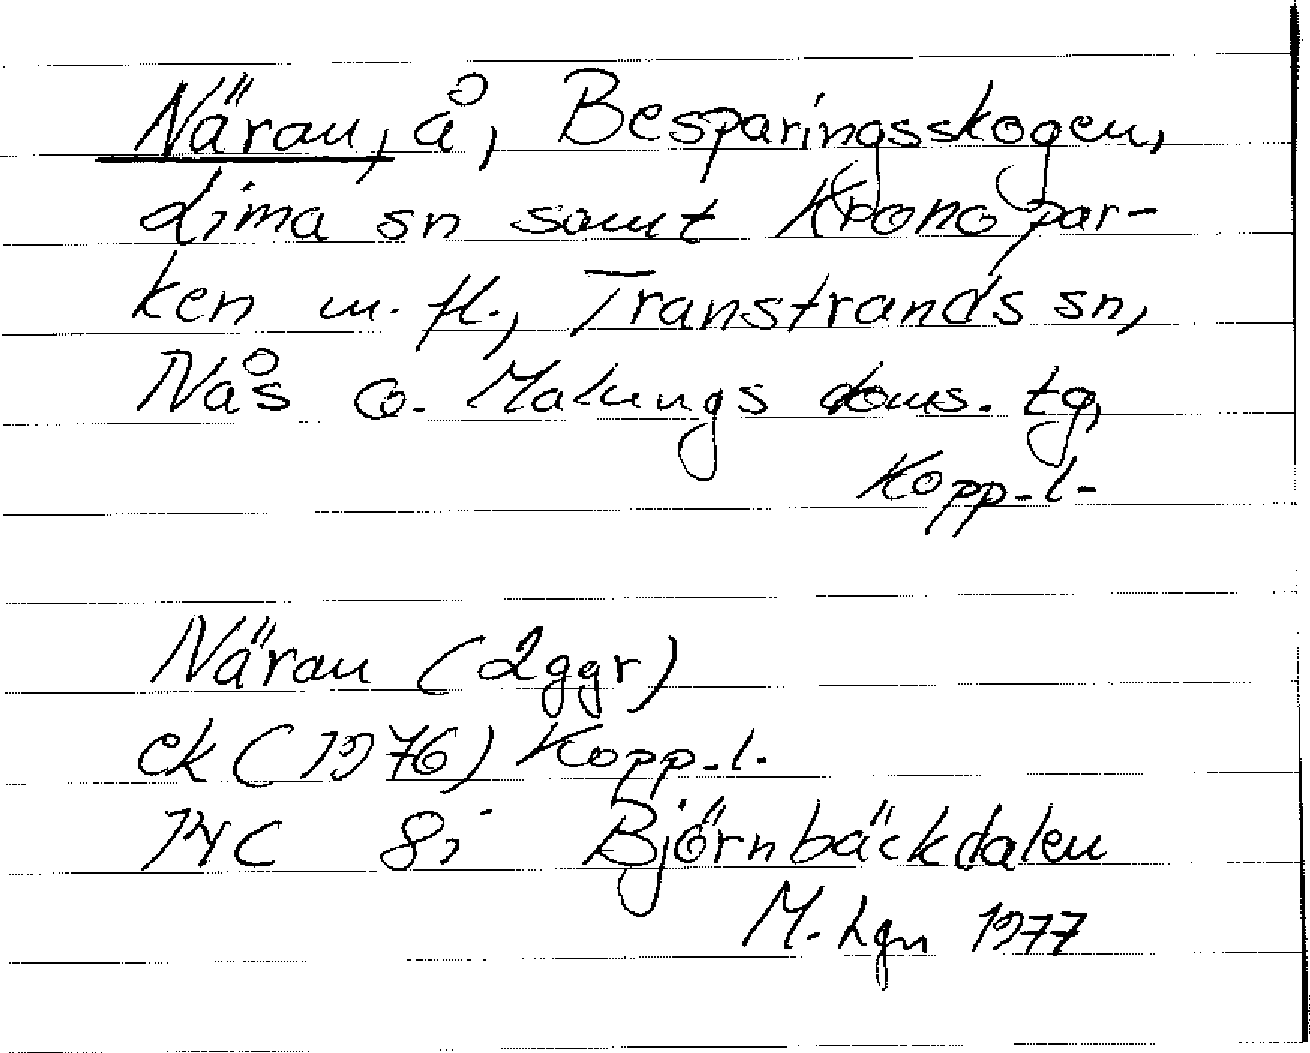 Näran, å, Besparingsskogen,
Lima sn samt Kronopar-
ken m. fl., Transtrands sn,
Nås o. Malungs doms. tg,
Kopp. l.
Näran (2ggr)
ek (1976) Kopp. l.
14C 8i Björnbäckdalen
M. Lgn 1977